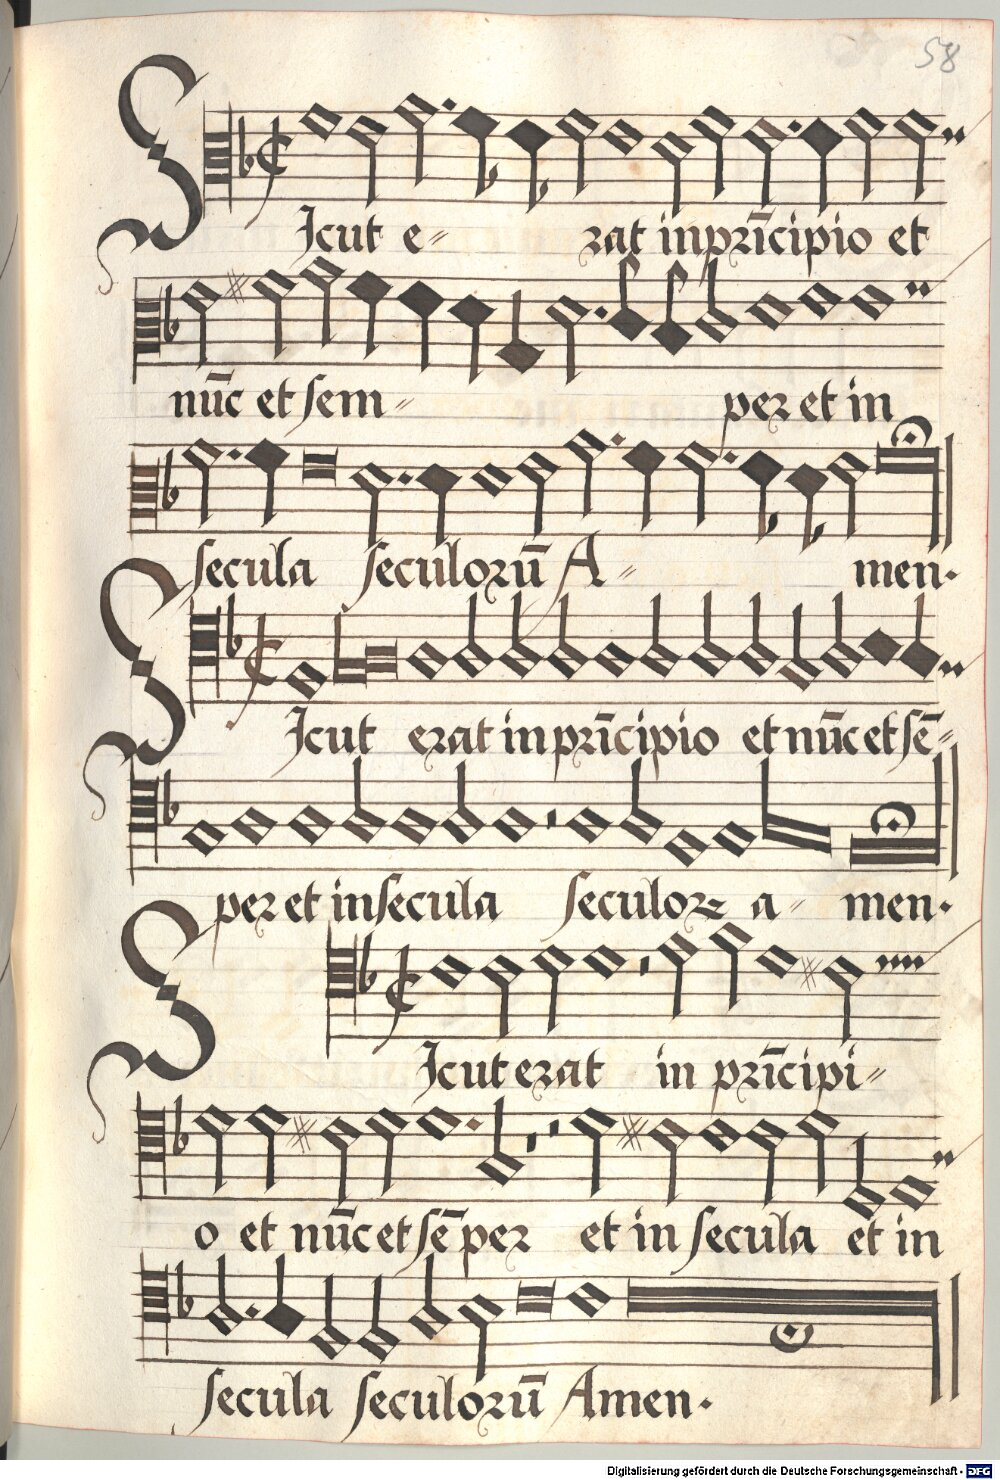 58
SIcut e˶ rat in pri̅cipio et
nu̅c et sem˶ per et in
secula seculoru̅ A˶ men.
SIcut erat in pri̅cipio et nu̅c et se̅˶
per et in secula seculorꝫ a˶ men.
SIcut erat in pri̅cipi˶
o et nu̅c et se̅per et in secula et in
secula seculoru̅ Amen.
Digitalisierung gefördert durch die Deutsche Forschungsgemeinschaft - DFG